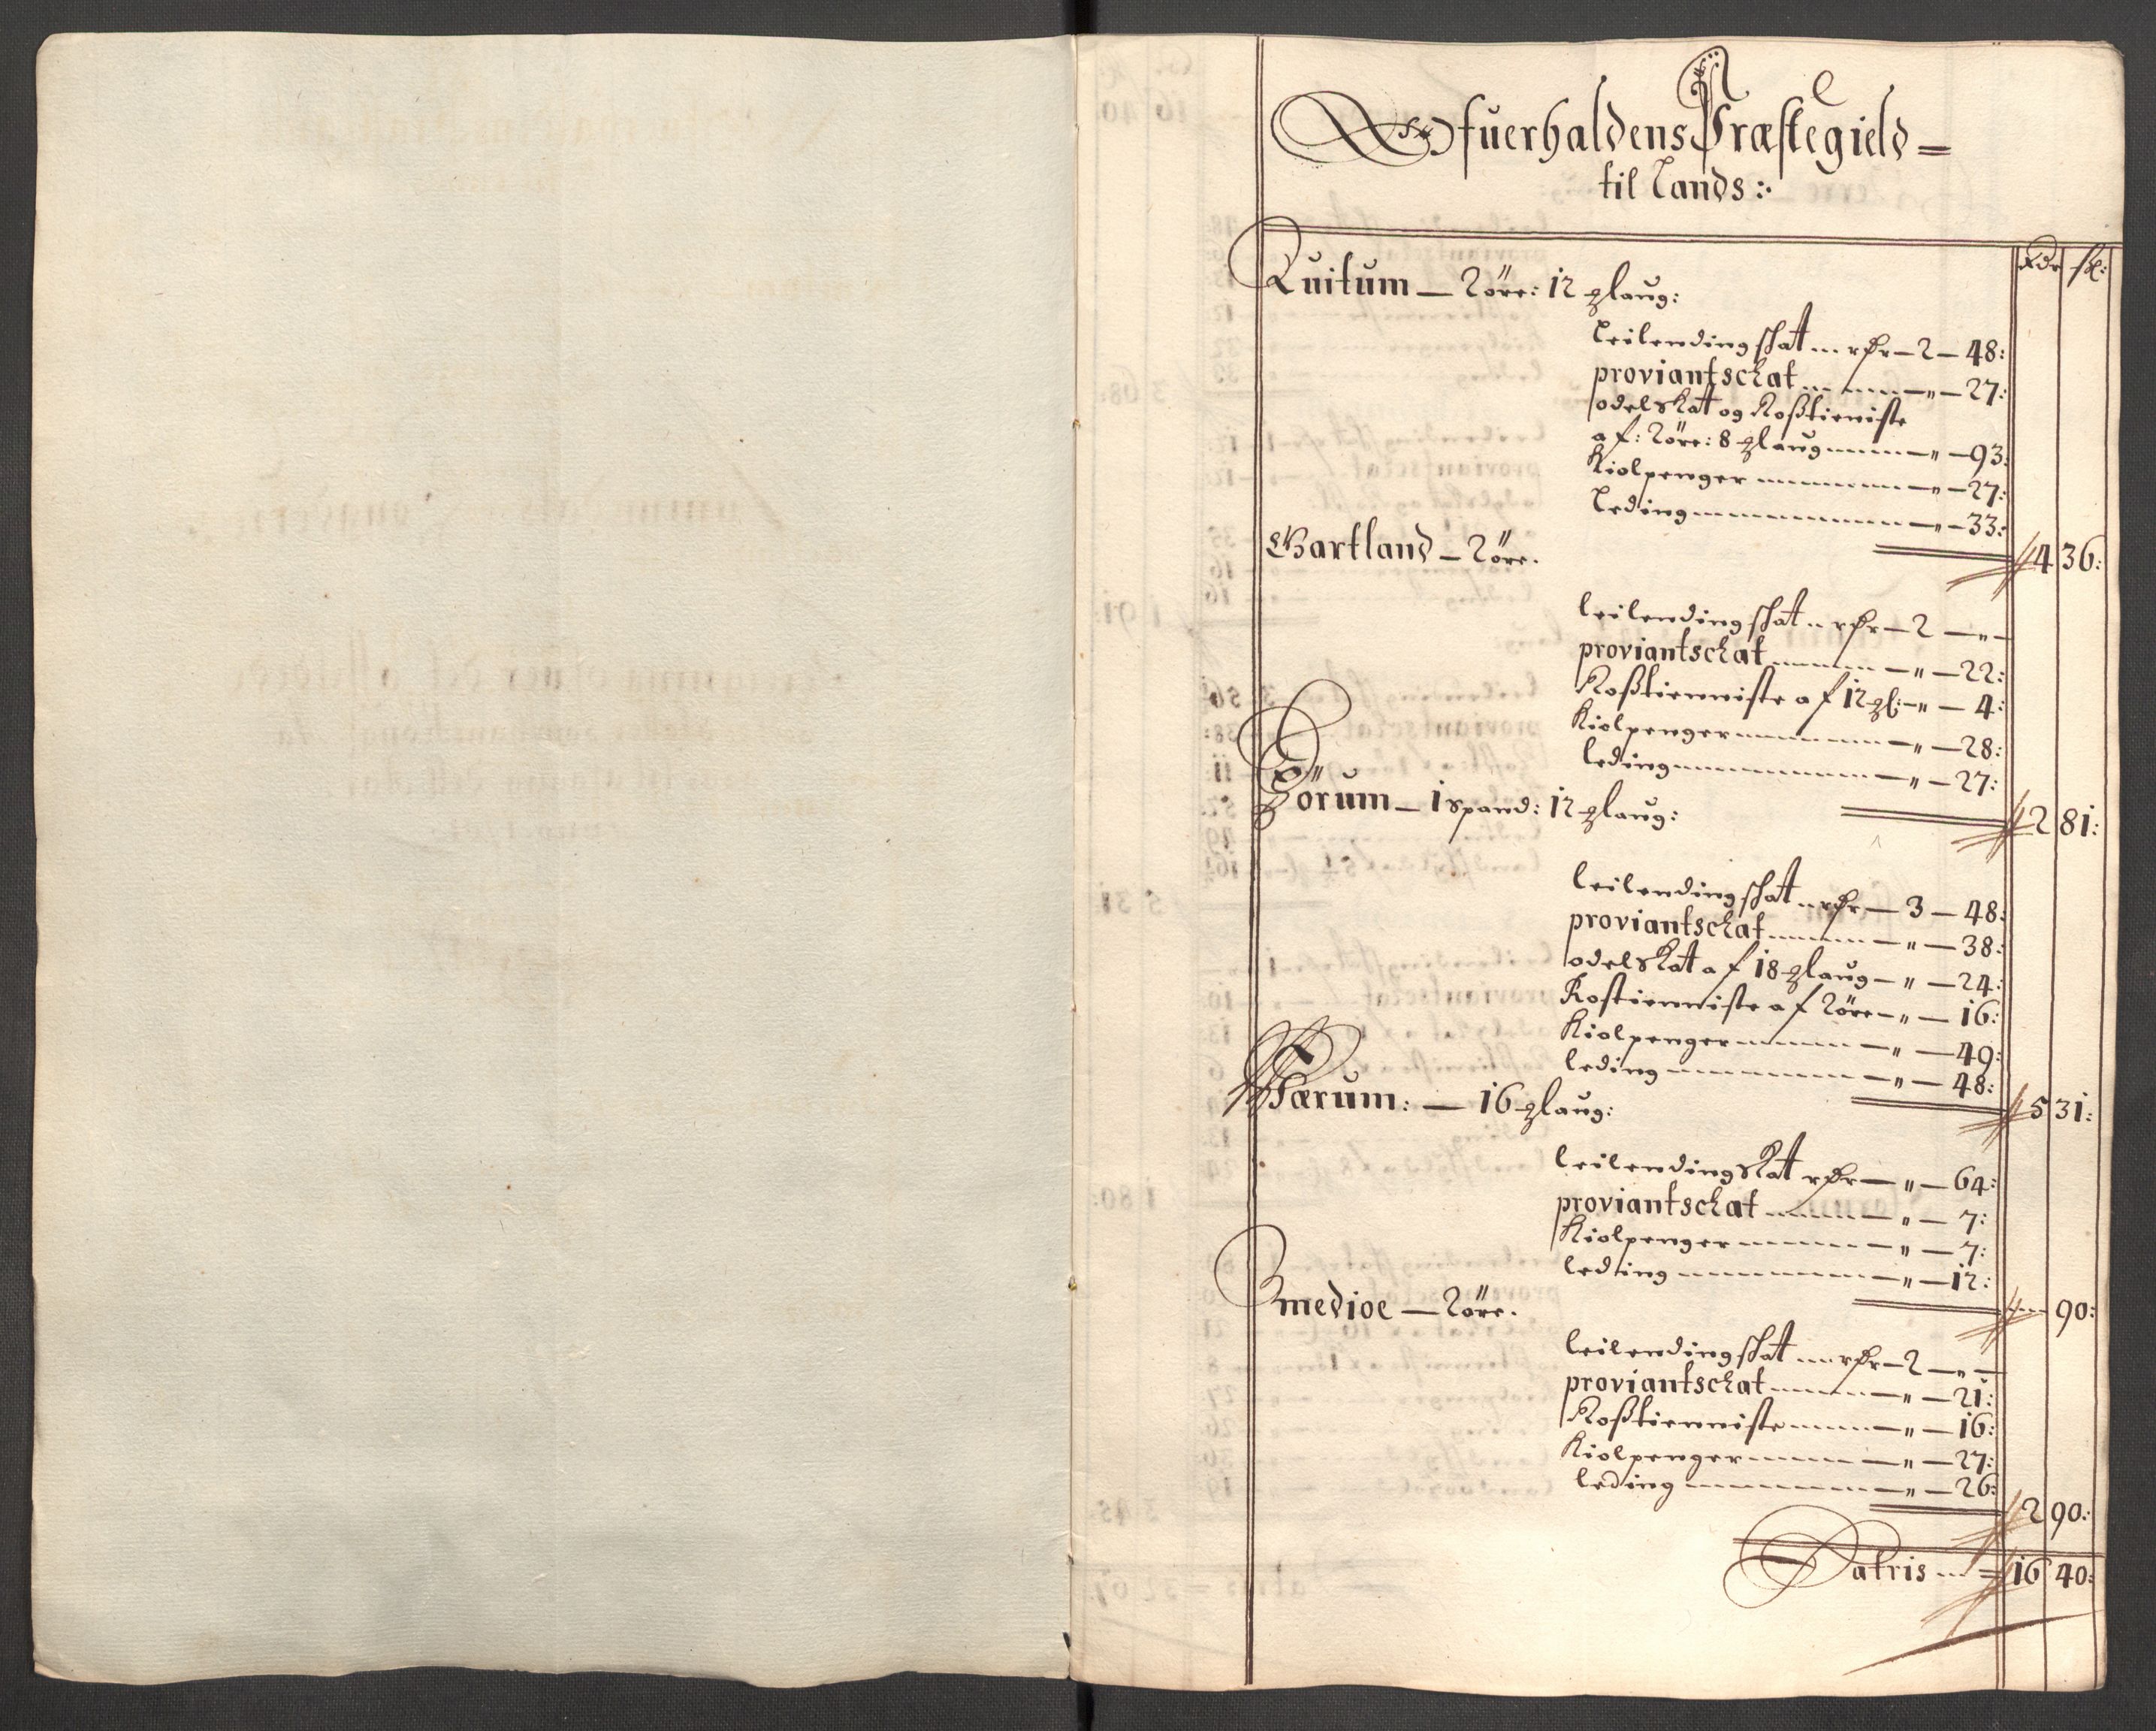 Ofuerhaldens Præstegield =
til Lands:
Rdr sk:
Quitum — 2 öre: 12 zlaug:
Leilending skat ... rdr — 2 — 48:
proviantschat ... — " — 27:
odelskat og Roßtieniste
af: 2 öre: 8 zlaug ... — " — 93:
Kiolpenger ... — " — 27:
Leding ... — " — 33:
4 36:
Gartland — 2 öre.
leilending skat .. rdr — 2 — " —
proviantschat ... — " — 22:
Roßtienniste af 12 zl: — " — 4:
Kiolpenger ... — " — 28:
leding ... — " — 27:
2 81:
Börum — 1 spand: 12 zlaug:
leilending skat .. rdr — 3 — 48:
proviantschat ... — " — 38:
odelskat af 18 zlaug — " — 24:
Rostienniste af 2 öre — " — 16:
Kiolpenger ... — " — 49:
leding ... — " — 48:
5 31:
Færum: — 16 zlaug:
leilending skat rdr — " — 64:
proviantschat ... — " — 7:
Kiolpenger ... — " — 7:
leding ... — " — 12:
90:
medioe — 2 öre.
leilending skat ... rdr — 2 — " —
proviantschat ... — " — 21:
Roßtienniste ... — " — 16:
Kiolpenger ... — " — 27:
leding ... — " — 26:
2 90:
Latris ... = 16 40: